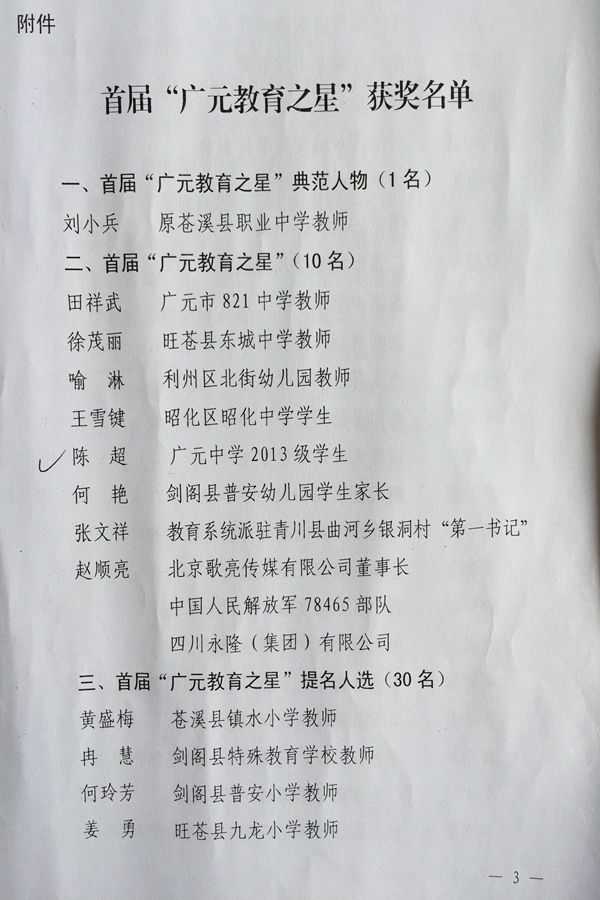 附件
首届“广元教育之星”获奖名单
一、首届“广元教育之星”典范人物（1名）
刘小兵 原苍溪县职业中学教师
二、首届“广元教育之星”（10名）
田祥武 广元市821中学教师
徐茂丽 旺苍县东城中学教师
喻 淋 利州区北街幼儿园教师
王雪键 昭化区昭化中学学生
陈 超 广元中学2013级学生
何 艳 剑阁县普安幼儿园学生家长
张文祥 教育系统派驻青川县曲河乡银洞村“第一书记”
赵顺亮 北京歌亮传媒有限公司董事长
中国人民解放军78465部队
四川永隆（集团）有限公司
三、首届“广元教育之星”提名人选（30名）
黄盛梅 苍溪县镇水小学教师
冉 慧 剑阁县特殊教育学校教师
何玲芳 剑阁县普安小学教师
姜 勇 旺苍县九龙小学教师
— 3 —